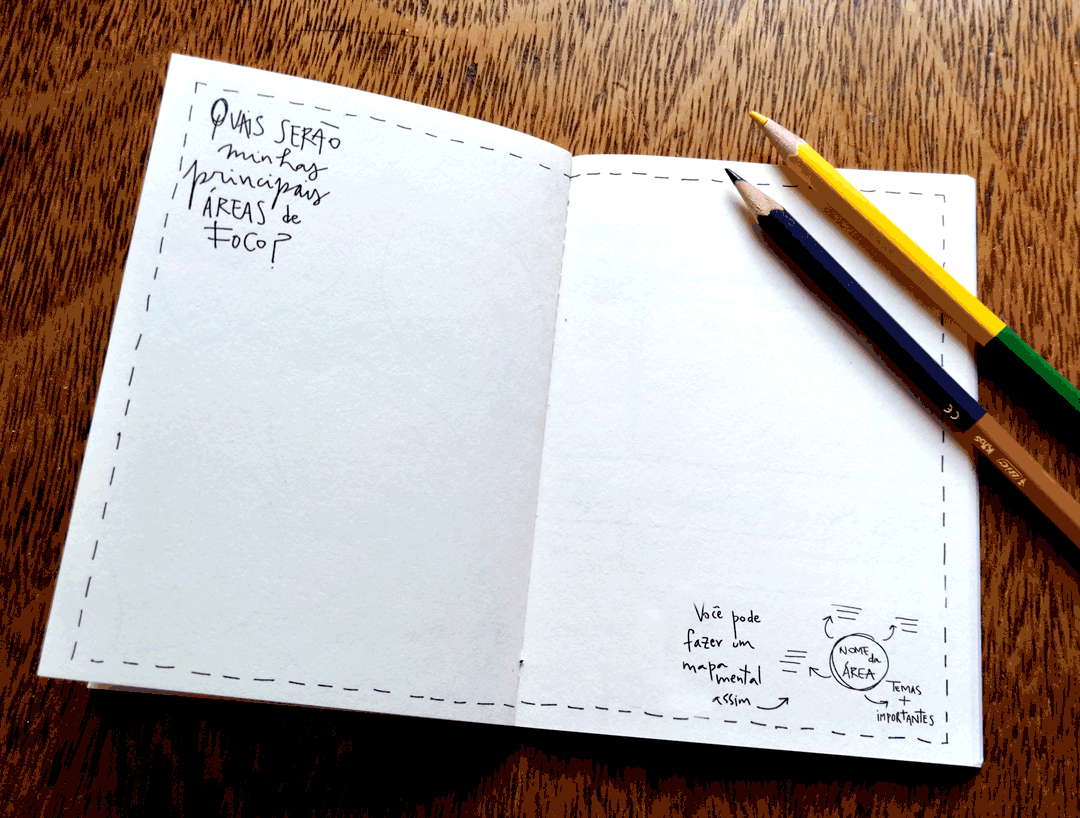 Quais serão
minhas
principais
áreas de
foco?
Você pode
fazer um
mapa
mental
assim
NOME
da
ÁREA
TEMAS
+
IMPORTANTES
CE
BIC Kids